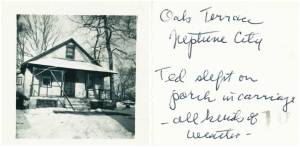 Oak Terrace
Neptune City
Ted slept on
porch in carriage
- all kinds of
weather -